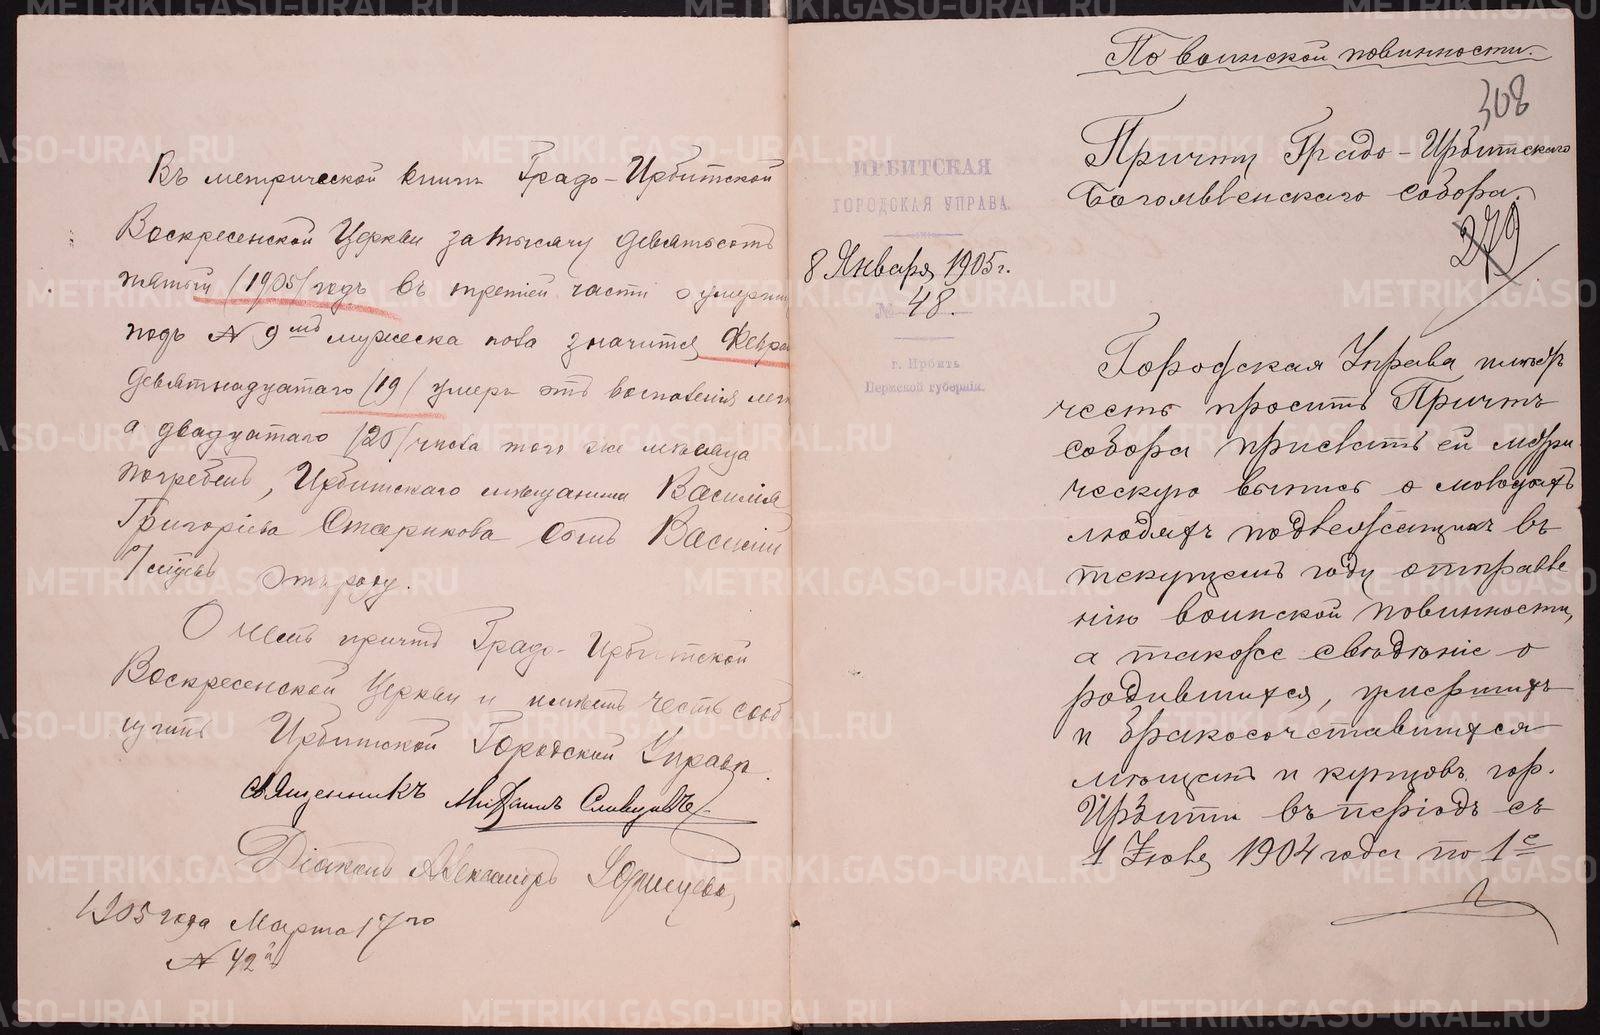 Въ метрической книгѣ Градо-Ирбитской
Воскресенской Церкви за тысячу девятьсотъ
пятый /1905/ годъ въ третіей части о умерши
подъ № 9мъ мужеска пола значится Февра
девятнадцатаго /19/ умеръ отъ воспаленія лег
а двадцатаго /20/ числа того же мѣсяца
погребенъ, Ирбитскаго мѣщанина Василія
Григоріева Старикова сынъ Василій
отъ роду.
О чемъ причтъ Градо-Ирбитской
Воскресенской Церкви и имѣетъ честь сооб
щить Ирбитской Городской Управѣ.
Священникъ Михаилъ Словцовъ
Діаконъ Александръ
1905 года Марта 17го
№ 42й
По воинской повинности.
308
Причту Градо-Ирбитскаго
Богоявленскаго собора.
279
ИРБИТСКАЯ
ГОРОДСКАЯ УПРАВА.
8 Января 1905 г.
№ 48.
г. Ирбитъ
Пермской губерніи.
Городская Управа имѣетъ
честь просить Причтъ
собора прислать ей метри
ческую выпись о молодыхъ
людяхъ подлежащихъ въ
текущемъ году отправле
нію воинской повинности,
а также свѣдѣніе о
родившихся, умершихъ
и бракосочетавшихся
мѣщанъ и купцовъ гор.
Ирбити въ періодъ съ
1 Января 1904 года по 1е
METRIKI.GASO-URAL.RU